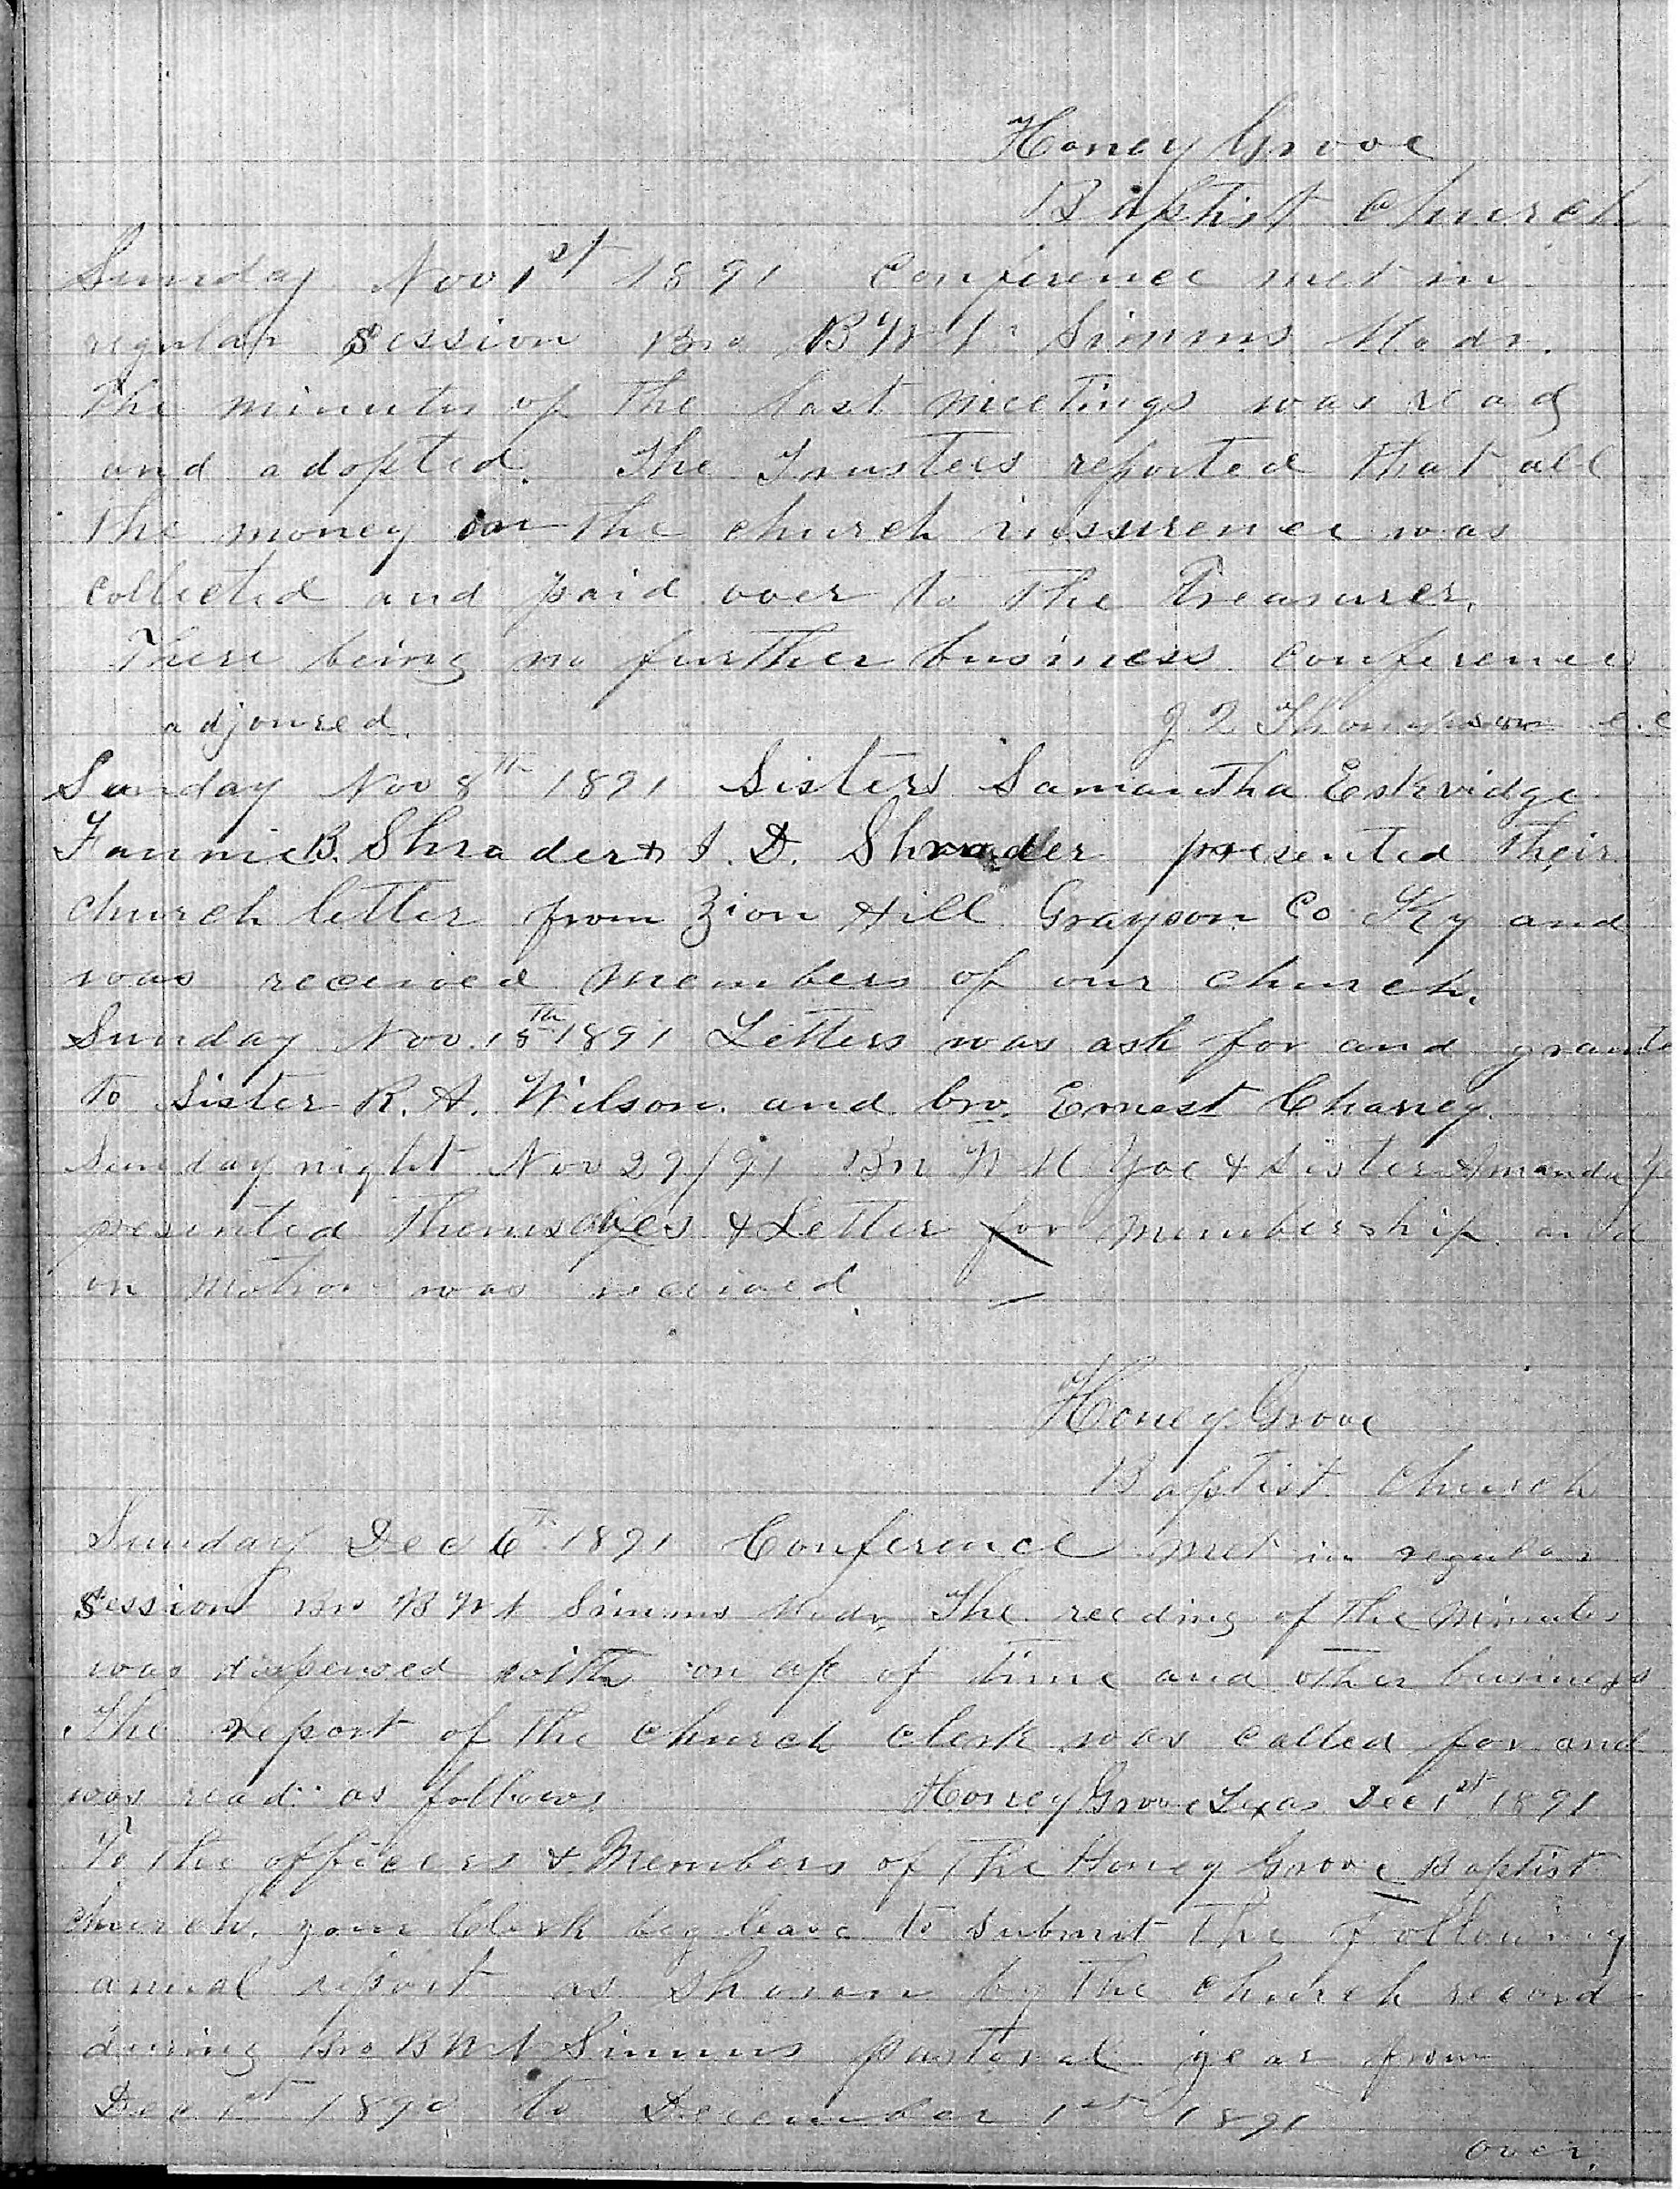 Honey Grove
Baptist Church
Sunday Nov 1st 1891 Conference met in
regular Session Bro B W N Simms Modr.
The minutes of the last meetings was read
and adopted. The Trustees reported that all
the money on the church inssurence was
collected and paid over to the Treasurer.
There being no further business conference
adjoured. J Q Thompson c.c
Sunday Nov 8th 1891 Sisters Samantha Eskridge
Fannie B. Shrader & I. D. Shrader presented Their
church letter from Zion Hill Grayson Co Ky and
was received members of our church.
Sunday Nov. 15th 1891 Letters was ask for and grante
to Sister R. A. Wilson. and bro. Ernest Chaney.
Sunday night Nov 29/91 Bro W M Yoe & Sister Amanda Y
presented Themselves & Letter for membership and
on motion was recieved.
Honey Grove
Baptist Church
Sunday Dec 6th 1891 Conference met in regular
Session Bro B W N Simms Modr. The reeding of the Minutes
was dispensed with on ap of time and other business
The report of the church clerk was called for and
was read as follows Honey Grove Texas Dec 1st 1891
To the officers & Members of The Honey Grove Baptist
church. your Clerk beg leave to submit The Following
anual report as shown by The church record
during Bro B W N Simms pastoral year from
Dec 1st 1890 to December 1st 1891
over.